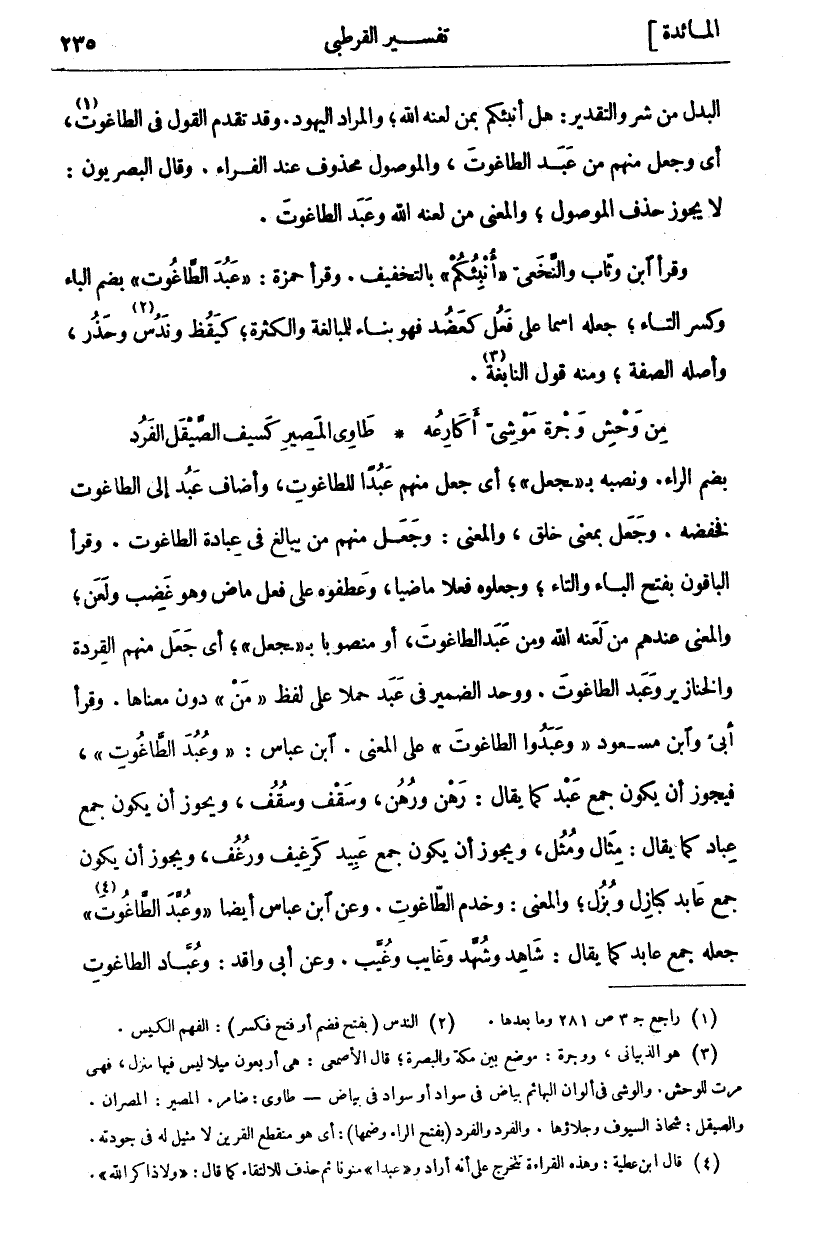 المائدة] تفسير القرطبى ٢٣٥
البدل من شر والتقدير: هل أنبئكم بمن لعنه الله؛ والمراد اليهود. وقد تقدم القول فى الطاغوت(١)،
أى وجعل منهم من عَبَد الطاغوتَ، والموصول محذوف عند الفراء. وقال البصريون:
لا يجوز حذف الموصول؛ والمعنى من لعنه الله وعَبَد الطاغوتَ.
وقرأ ٱبن وثاب والنَّخَعىّ «أُنْبِئُكُمْ» بالتخفيف. وقرأ حمزة: «عَبُدَ الطَّاغُوت» بضم الباء
وكسر التاء؛ جعله اسما على فَعُل كعَضُد فهو بناء للمبالغة والكثرة؛ كيَقُظ وندُس(٢) وحَذُر،
وأصله الصفة؛ ومنه قول النابغة(٣).
مِن وَحْشِ وَجْرة مَوْشِىّ أَكَارِعُه * طَاوِى المَصِيرِ كَسيف الصَّيْقَل الفَرُد
بضم الراء. ونصبه بـ«ـجعل»؛ أى جعل منهم عَبُدًا للطاغوتِ، وأضاف عَبُد إلى الطاغوت
فخفضه. وجَعَل بمعنى خلق، والمعنى: وجَعَل منهم من يبالغ فى عبادة الطاغوت. وقرأ
الباقون بفتح الباء والتاء؛ وجعلوه فعلا ماضيا، وعَطفوه على فعل ماض وهو غَضِب ولَعَن؛
والمعنى عندهم من لَعَنه الله ومن عَبَد الطاغوتَ، أو منصوبا بـ«ـجعل»؛ أى جَعَل منهم القِردة
والخنازير وعَبد الطاغوتَ. ووحد الضمير فى عَبَد حملا على لفظ «مَنْ» دون معناها. وقرأ
أبىّ وٱبن مسعود «وعَبَدُوا الطاغوتَ» على المعنى. ٱبن عباس: «وعُبُدَ الطَّاغُوتِ»،
فيجوز أن يكون جمع عَبْد كما يقال: رَهْن ورُهُن، وسَقْف وسقُف، ويجوز أن يكون جمع
عِباد كما يقال: مِثال ومُثُل، ويجوز أن يكون جمع عَبِيد كَرغِيف ورُغُف، ويجوز أن يكون
جمع عَابد كبازِل وبُزُل؛ والمعنى: وخدم الطّاغوتِ. وعن ٱبن عباس أيضا «وعُبَّدَ الطَّاغُوتَ(٤)»
جعله جمع عابد كما يقال: شَاهِد وشُهَّد وغَايب وغُيَّب. وعن أبى واقد: وعُبَّاد الطاغوتِ
(١) راجع جـ ٣ ص ٢٨١ وما بعدها. (٢) الندس (بفتح فضم أو فتح فكسر): الفهم الكيس.
(٣) هو الذبيانى، ووجرة: موضع بين مكة والبصرة؛ قال الأصمعى: هى أربعون ميلا ليس فيها منزل، فهى
مرت للوحش. والوشى فى ألوان البهائم بياض فى سواد أو سواد فى بياض — طاوى: ضامر. المصير: المصران.
والصيقل: شحاذ السيوف وجلاؤها. والفرد والفرد (بفتح الراء وضمها): أى هو منقطع القرين لا مثيل له فى جودته.
(٤) قال ابن عطية: وهذه القراءة تتخرج على أنه أراد و«عبدا» منونا ثم حذف للالتقاء كما قال: «ولا ذاكر الله».